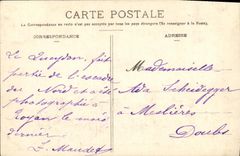 CARTE POSTALE
La Correspondance au recto n'est pas acceptée par tous les pays étrangers (Se renseigner à la Poste).
CORRESPONDANCE
ADRESSE
Le Gueydon, fait
partie de l'escadre
du Nord et a été
photographié à
Royan le mois
dernier
Mademoiselle
Ida Scheidegger
à Meslières
Doubs